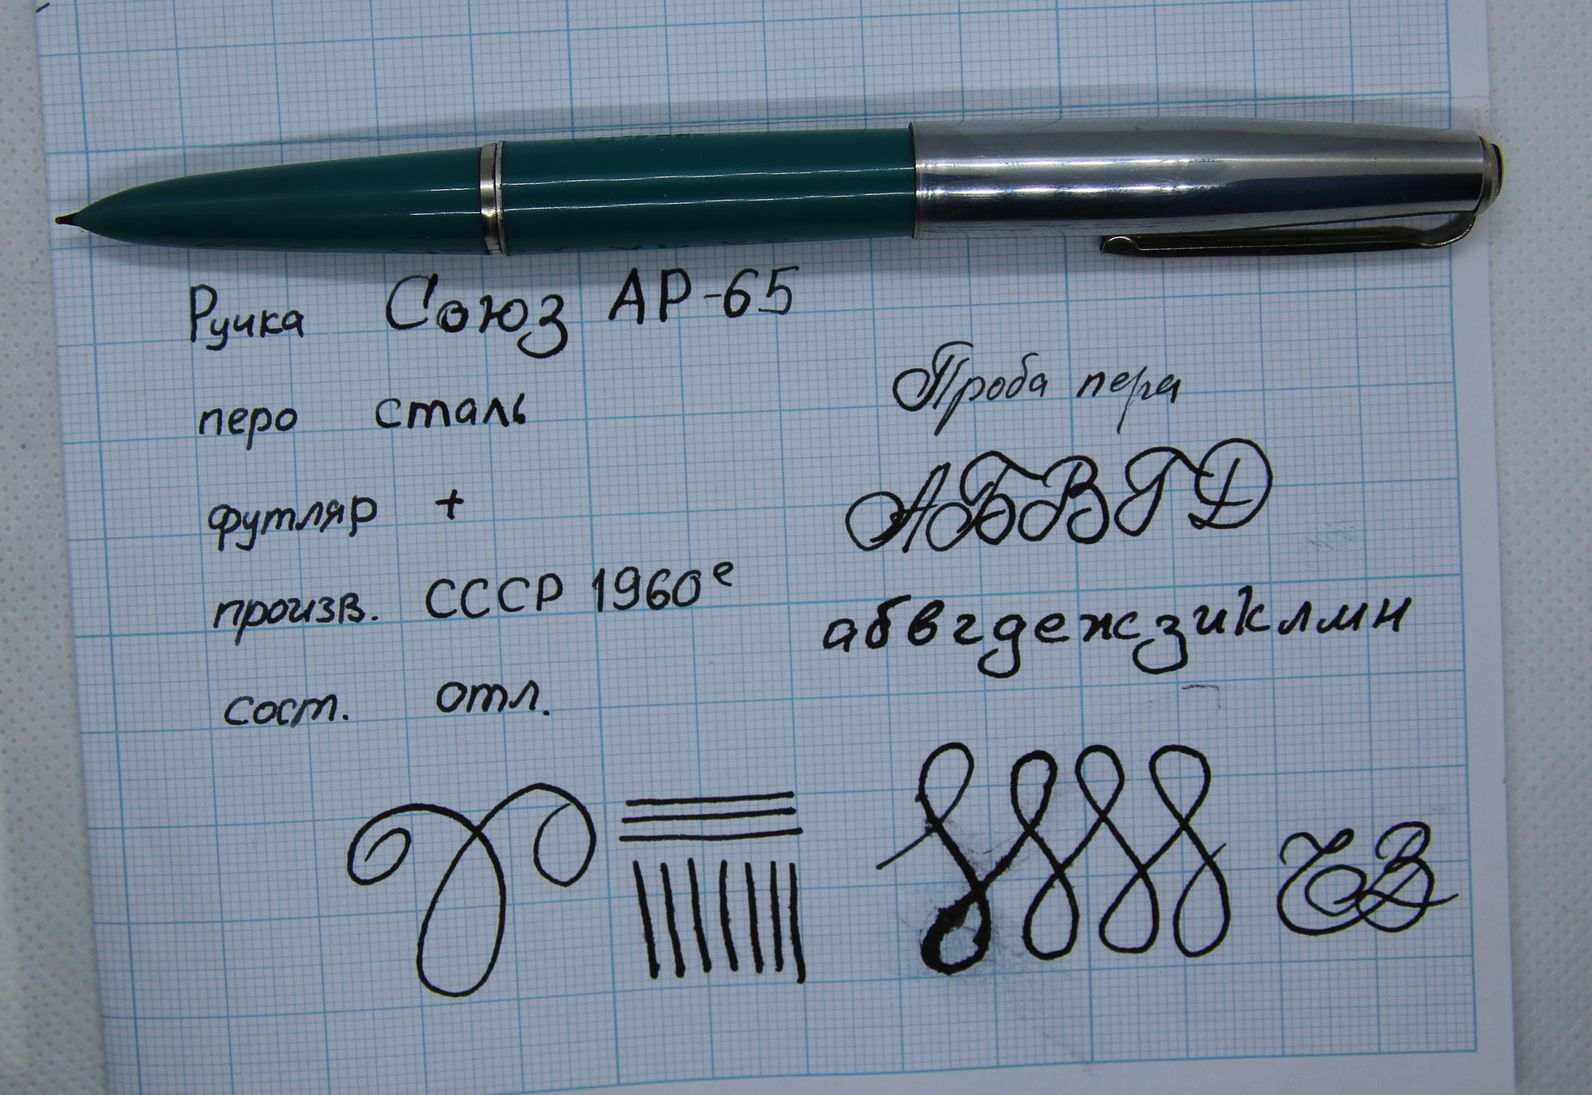 Ручка Союз АР-65
перо сталь
футляр +
произв. СССР 1960е
сост. отл.
Проба пера
АБВГД
абвгдежзиклмн